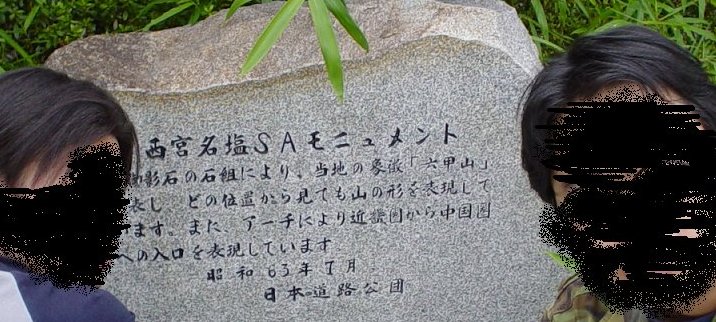 西宮名塩SAモニュメント
影石の石組により、当地の象徴「六甲山」
し どの位置から見ても山の形を表現して
ます。また、アーチにより近畿圏から中国圏
への入口を表現しています。
昭和63年7月
日本道路公団